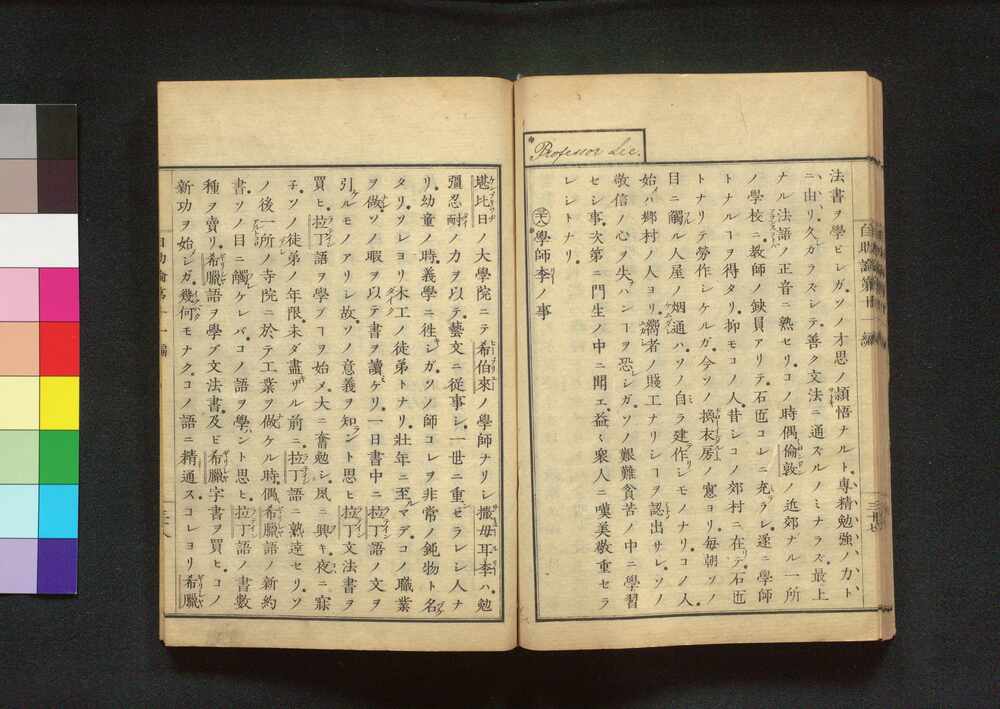 Professor Lee.
法書ヲ學ビシガ。ソノ才思ノ頴悟ナルト。専精勉強ノ力ト
ニ由リ。久カラズシテ。善ク文法ニ通ズルノミナラズ。最上
ナル法語ノ正音ニ熟セリ。コノ時偶倫敦ノ近郊ナル一所
ノ學校ニ。教師ノ缺員アリテ。石匠コレニ充ラレ。遂ニ學師
トナルヿヲ得タリ。抑モコノ人。昔シコノ郊村ニ在テ。石匠
トナリテ勞作シケルガ。今ソノ換衣房ノ窓ヨリ毎朝ソノ
目ニ觸ル人屋ノ烟通ハ。ソノ自ラ建作シモノナリ。コノ人
始ハ郷村ノ人ヨリ。嚮者ノ賤工ナリシヿヲ認出サレ。ソノ
敬信ノ心ヲ失ハンヿヲ恐シガ。ソノ艱難貧苦ノ中ニ學習
セシ事。次第ニ門生ノ中ニ聞エ。益々衆人ニ嘆美敬重セラ
レシトナリ。
學師李ノ事
堪比日ノ大學院ニテ希伯來ノ學師ナリシ撒母耳李ハ。勉
彊忍耐ノ力ヲ以テ。藝文ニ從事シ。一世ニ重ゼラレシ人ナ
リ。幼童ノ時。義學ニ徃シガ。ソノ師コレヲ非常ノ鈍物ト名
タリ。ソレヨリ木工ノ徒弟トナリ。壯年ニ至ルマデ。コノ職業
ヲ做ソノ暇ヲ以テ書ヲ讀ケリ。一日書中ニ拉丁語ノ文ヲ
引ルモノアリシ故。ソノ意義ヲ知ント思ヒ。拉丁文法書ヲ
買ヒ。拉丁語ヲ學ブヿヲ始メ。大ニ奮勉シ。夙ニ興キ。夜ニ寐
子。ソノ徒弟ノ年限未ダ盡ザル前ニ。拉丁語ニ熟達セリ。ソ
ノ後一所ノ寺院ニ於テ工業ヲ做ケル時。偶希臘語ノ新約
書。ソノ目ニ觸ケレバ。コノ語ヲ學ント思ヒ。拉丁語ノ書數
種ヲ賣リ。希臘語ヲ學ブ文法書及ビ希臘字書ヲ買ヒ。コノ
新功ヲ始シガ。幾何モナク。コノ語ニ精通ス。コレヨリ希臘